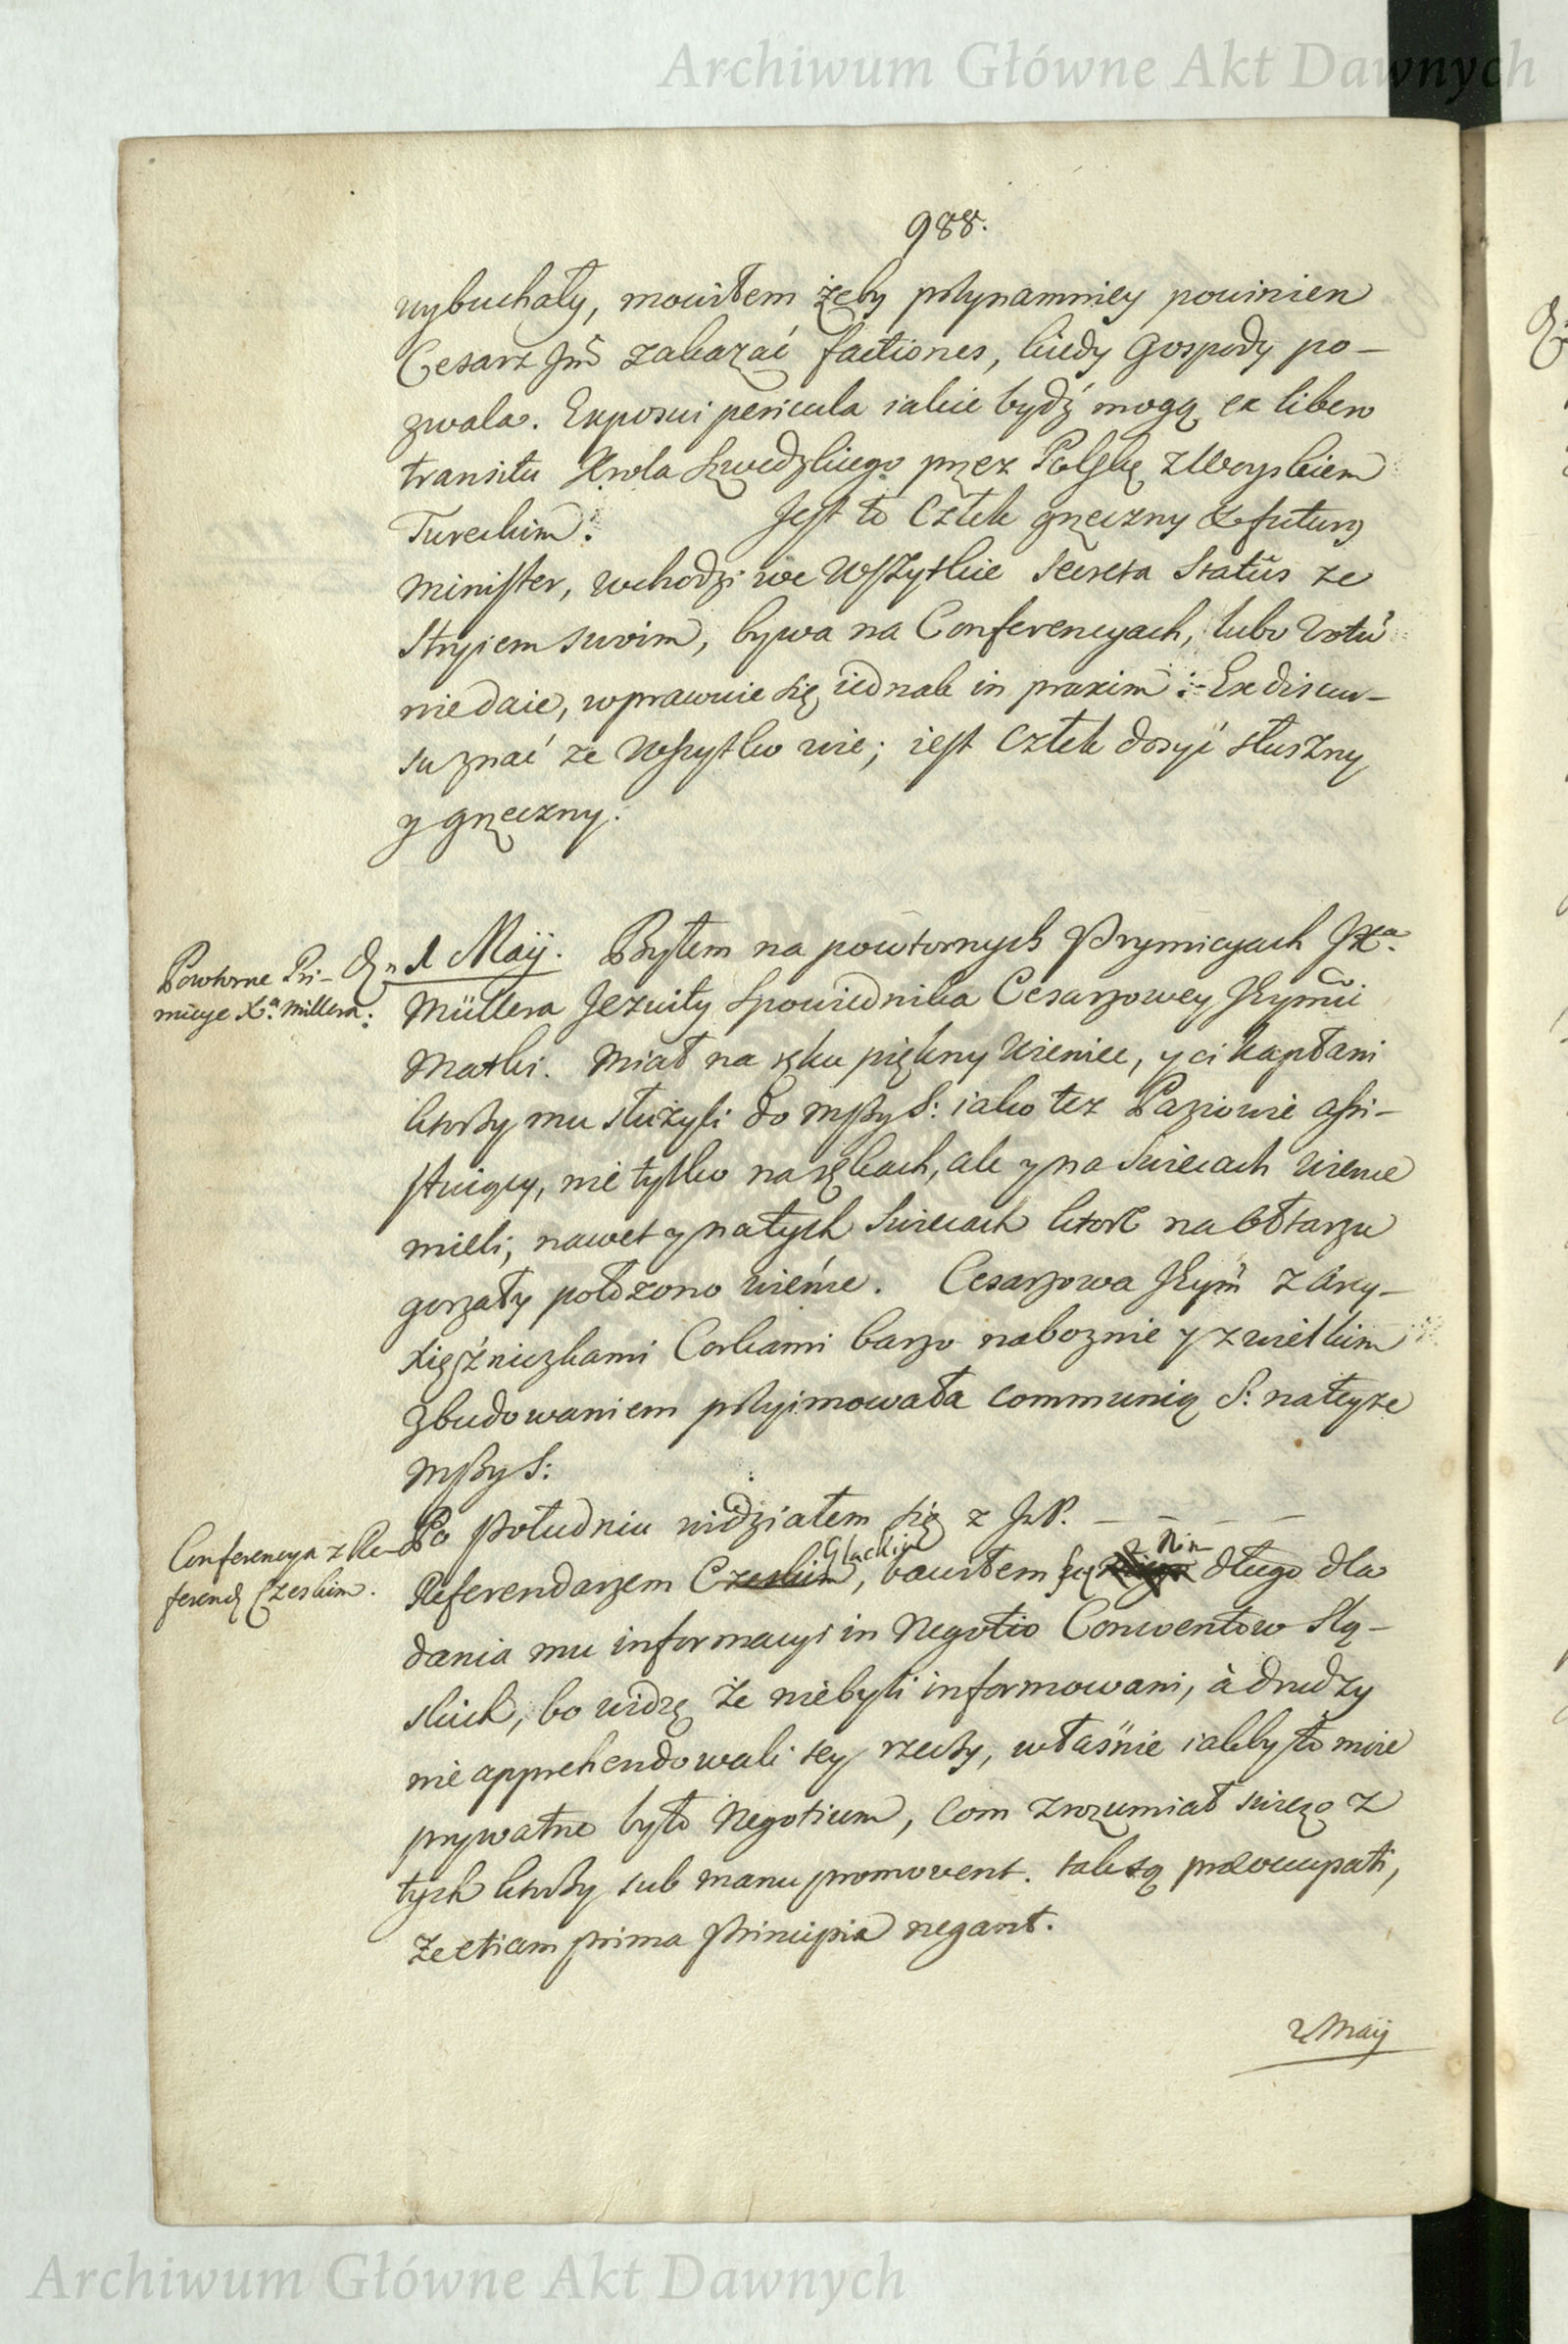 Archiwum Główne Akt Dawnych
988.
wybuchały, mowiłem żeby przynamniey powinien
Cesarz Jmć zakazać factiones, kiedy Gospody po-
zwala. Exposui pericula iakie bydź mogą ex libero
transitu Krola Szwedzkiego przez Polskę z Woyskiem
Tureckim. Jest to Człek grzeczny & futurus
Minister, wchodzi we wszytkie Secreta Statûs ze
Stryiem swoim, bywa na Conferencyach, lubo Votũ
nie daie, wprawuie się iednak in praxim :- Ex discur-
su znać że wszytko wie; iest Człek dosyć słuszny
y grzeczny.
Powtorne Pri-
micye Xa. Millera.
Dn. 1 Maÿ. Byłem na powtornych Prymicyach JXa.
Müllera Jezuity Spowiednika Cesarzowey Jeymći
Matki. Miał na ręku piękny Wieniec, y ci kapłani
ktorzy mu służyli do Mszy S: iako też Paziowie assi-
stuiący, nie tylko na rękach, ale y na Swiecach Wience
mieli, nawet y na tych Swiecach ktore na Ołtarzu
gorzały połozono wieńce. Cesarzowa Jeym̃ z Arcy-
Xięźniczkami Corkami barzo naboznie y z wielkim
zbudowaniem przyimowała Communią S: na teyze
Mszy S:
Conferencya z Re-
ferend. Czeskim.
Po Południu widziałem się z J.P. - - - -
Referendarzem Czeskim Glackim, bawiłem się z Nim długo dla
dania mu informacyi in Negotio Conventow Slą-
skich, bo widzę że niebyli informowani, à drudzy
nie apprehendowali tey rzeczy, właśnie iakby to moie
prywatne było Negotium, com zrozumiał swiezo z
tych ktorzy sub manu promovent. tak są præoccupati,
że etiam prima Principia negant.
2 Maij
Archiwum Główne Akt Dawnych